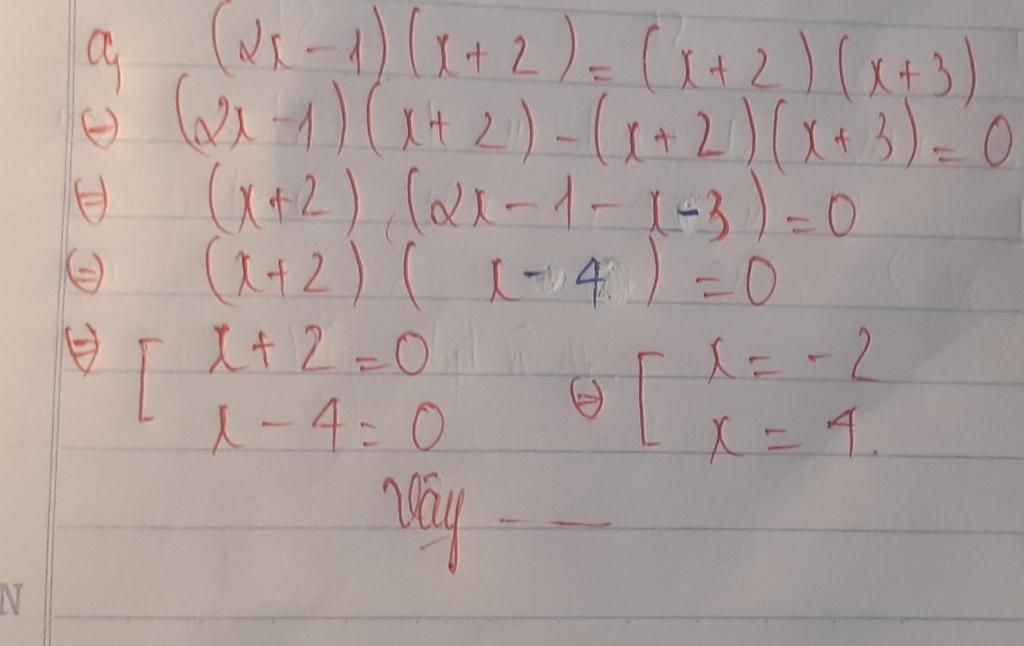 a, (2x-1)(x+2)=(x+2)(x+3)
⇔ (2x-1)(x+2)-(x+2)(x+3)=0
⇔ (x+2)(2x-1-x-3)=0
⇔ (x+2)( x-4 )=0
⇔ [ x+2=0 ⇔ [ x=-2
x-4=0 x=4.
Vậy - —
N